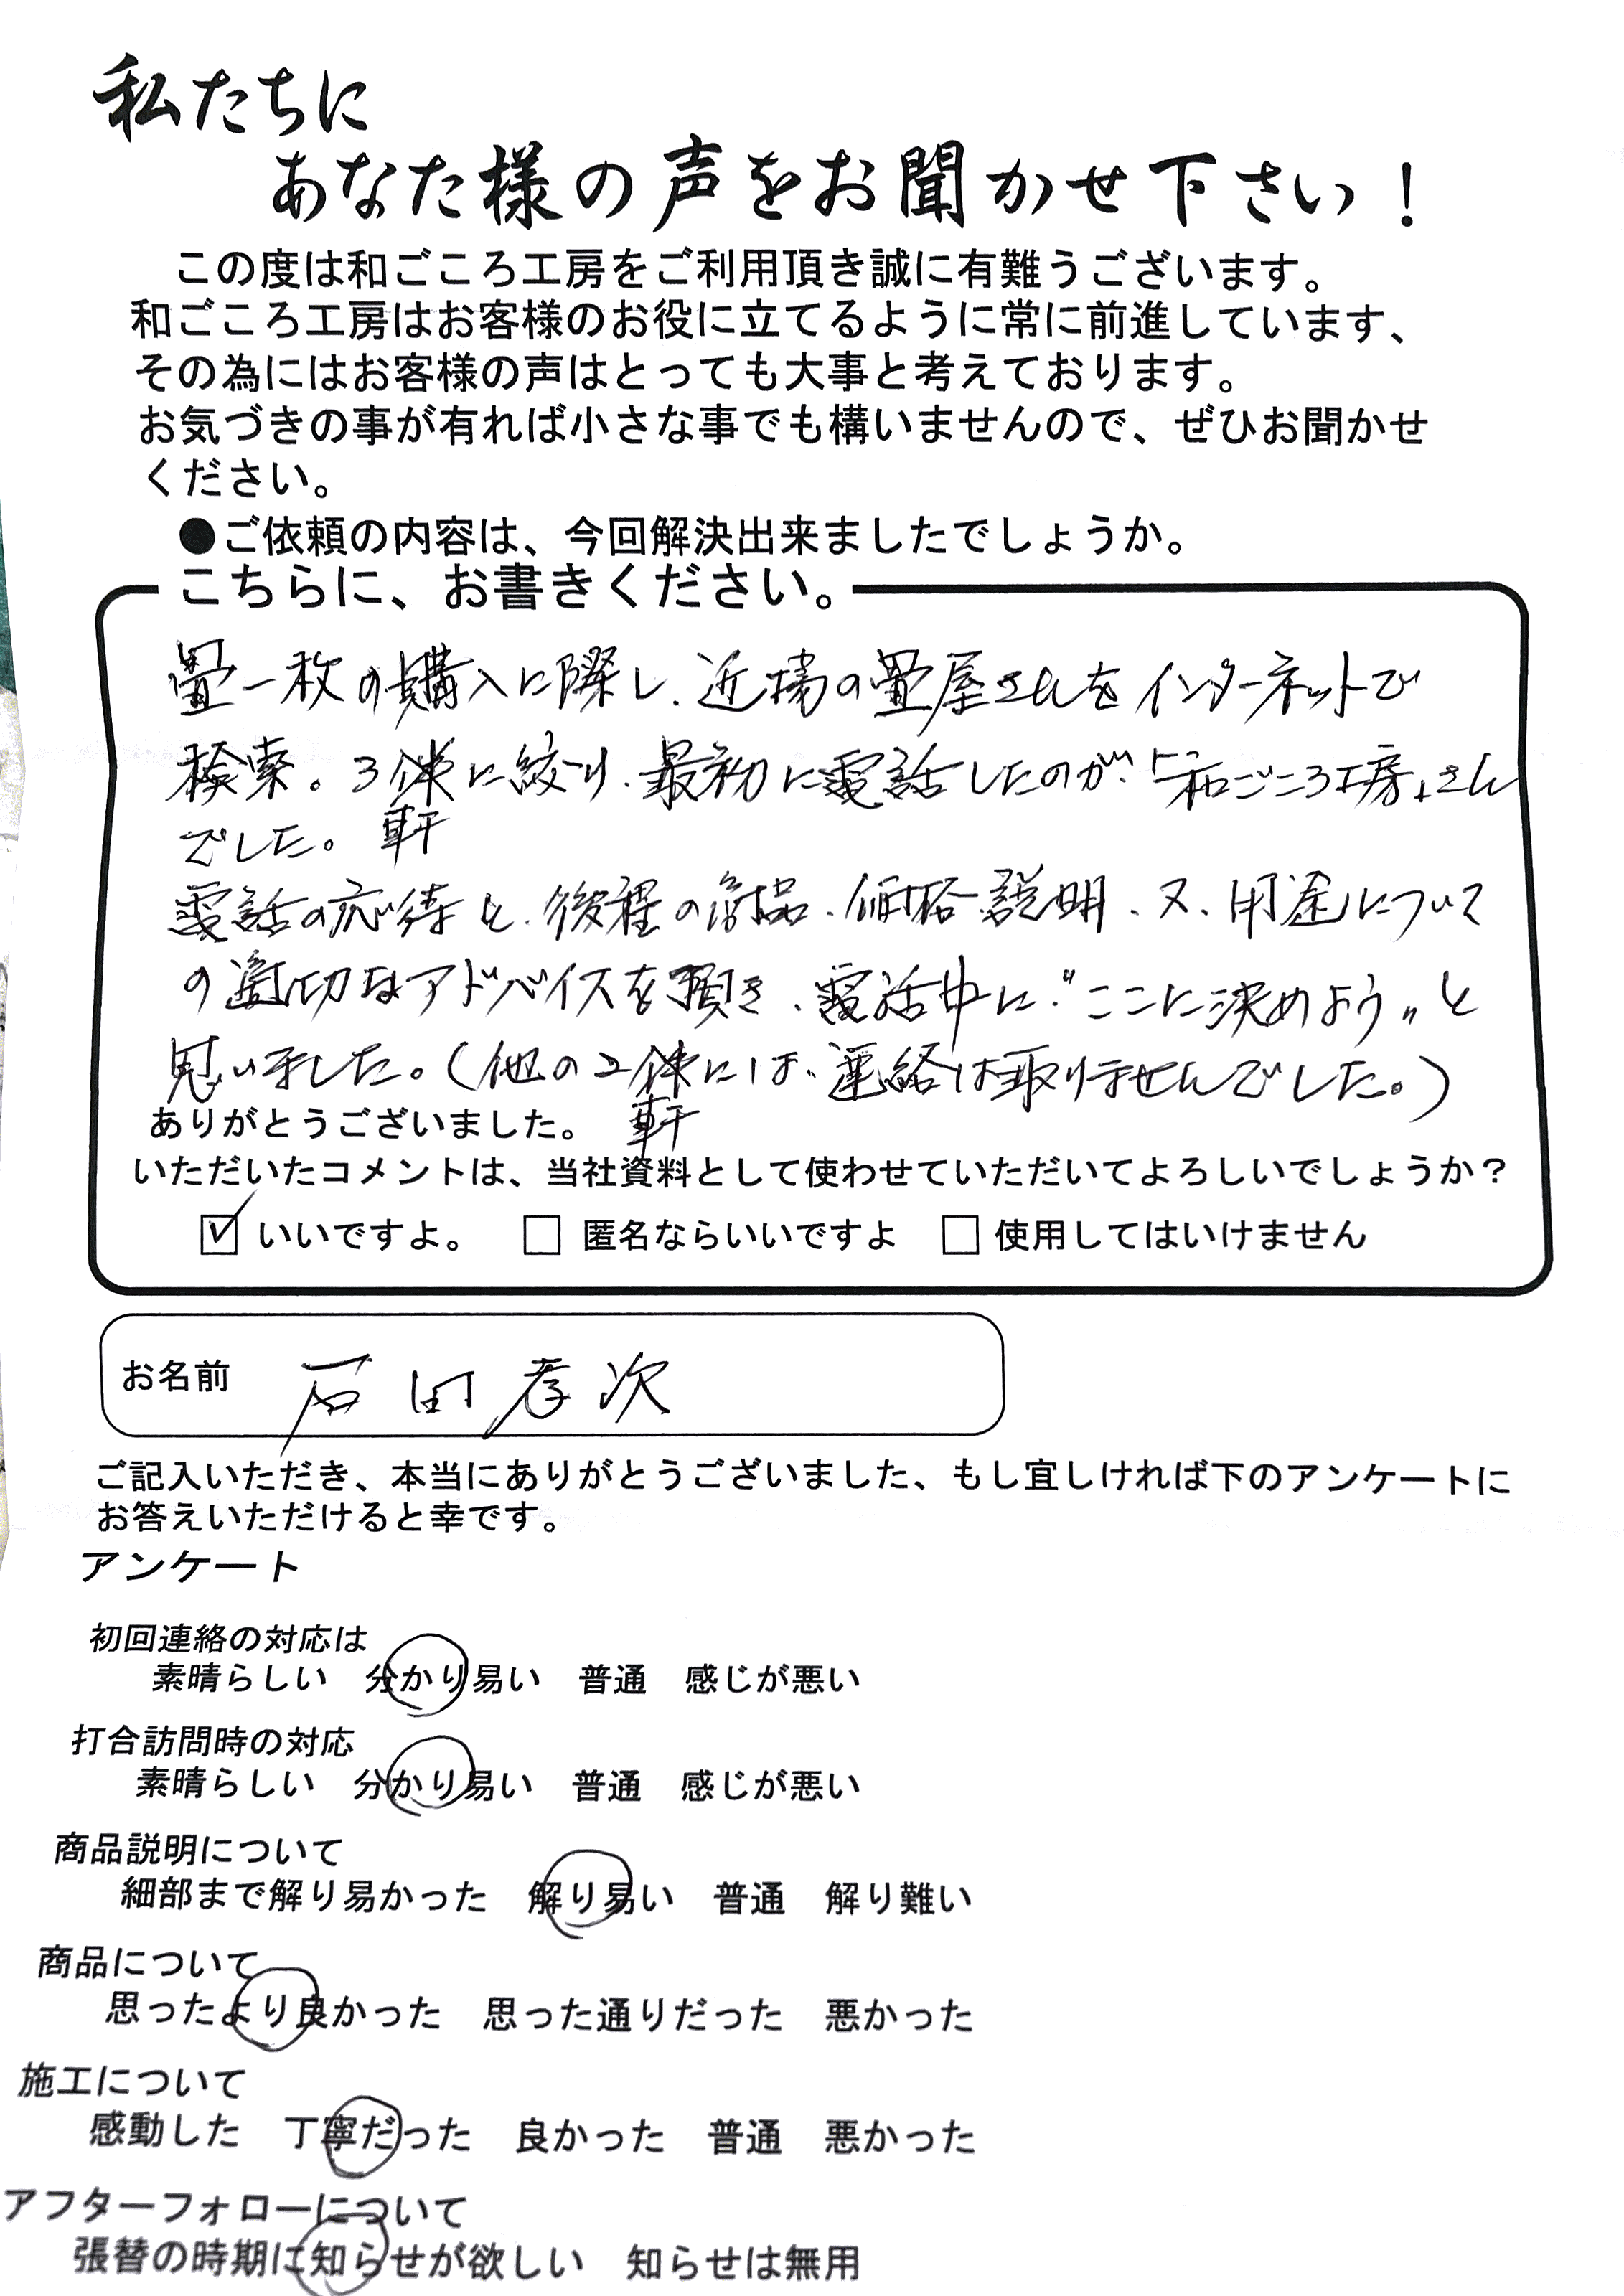 私たちに
あなた様の声をお聞かせ下さい！
この度は和ごころ工房をご利用頂き誠に有難うございます。
和ごころ工房はお客様のお役に立てるように常に前進しています、
その為にはお客様の声はとっても大事と考えております。
お気づきの事が有れば小さな事でも構いませんので、ぜひお聞かせ
ください。
●ご依頼の内容は、今回解決出来ましたでしょうか。
こちらに、お書きください。
畳一枚の購入に際し、近場の畳屋さんをインターネットで
検索。3件に絞り、最初に電話したのが、「和ごころ工房」さん
軒
でした。
電話の応待と、後程の商品、価格説明、又、用途について
の適切なアドバイスを頂き、電話中に"ここに決めよう"と
思いました。(他の2件には、連絡は取りませんでした。)
軒
ありがとうございました。
いただいたコメントは、当社資料として使わせていただいてよろしいでしょうか？
☑ いいですよ。 □ 匿名ならいいですよ □ 使用してはいけません
お名前 石田孝次
ご記入いただき、本当にありがとうございました、もし宜しければ下のアンケートに
お答えいただけると幸です。
アンケート
初回連絡の対応は
素晴らしい 分かり易い 普通 感じが悪い
打合訪問時の対応
素晴らしい 分かり易い 普通 感じが悪い
商品説明について
細部まで解り易かった 解り易い 普通 解り難い
商品について
思ったより良かった 思った通りだった 悪かった
施工について
感動した 丁寧だった 良かった 普通 悪かった
アフターフォローについて
張替の時期に知らせが欲しい 知らせは無用